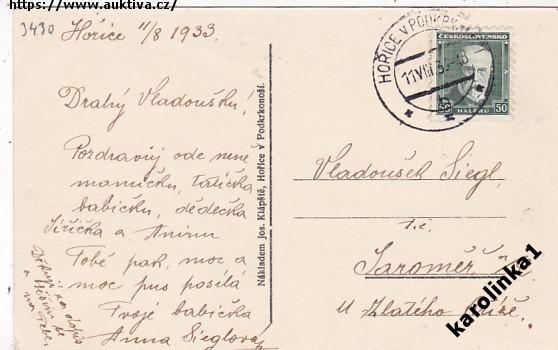 https://www.auktiva.cz/
3430
Hořice 11/8 1933.
Drahý Vladoušku!
Pozdravuj ode mne
maminku, tatíčka
babičku, dědečka
Jiříčka a
Tobě pak, moc a
moc pus posílá
Tvoje babička
Anna Sieglová
Děkuji za dopis
a těším se
na Tebe.
Nákladem jos. Klápště, Hořice v Podkrkonoší.
HOŘICE V PODKRK
11.VIII.33-18
ČESKOSLOVENSKO
50 HALÉŘŮ 50
Vladoušek Siegl,
t.č.
Jaroměř
U Zlatého
karolinka1